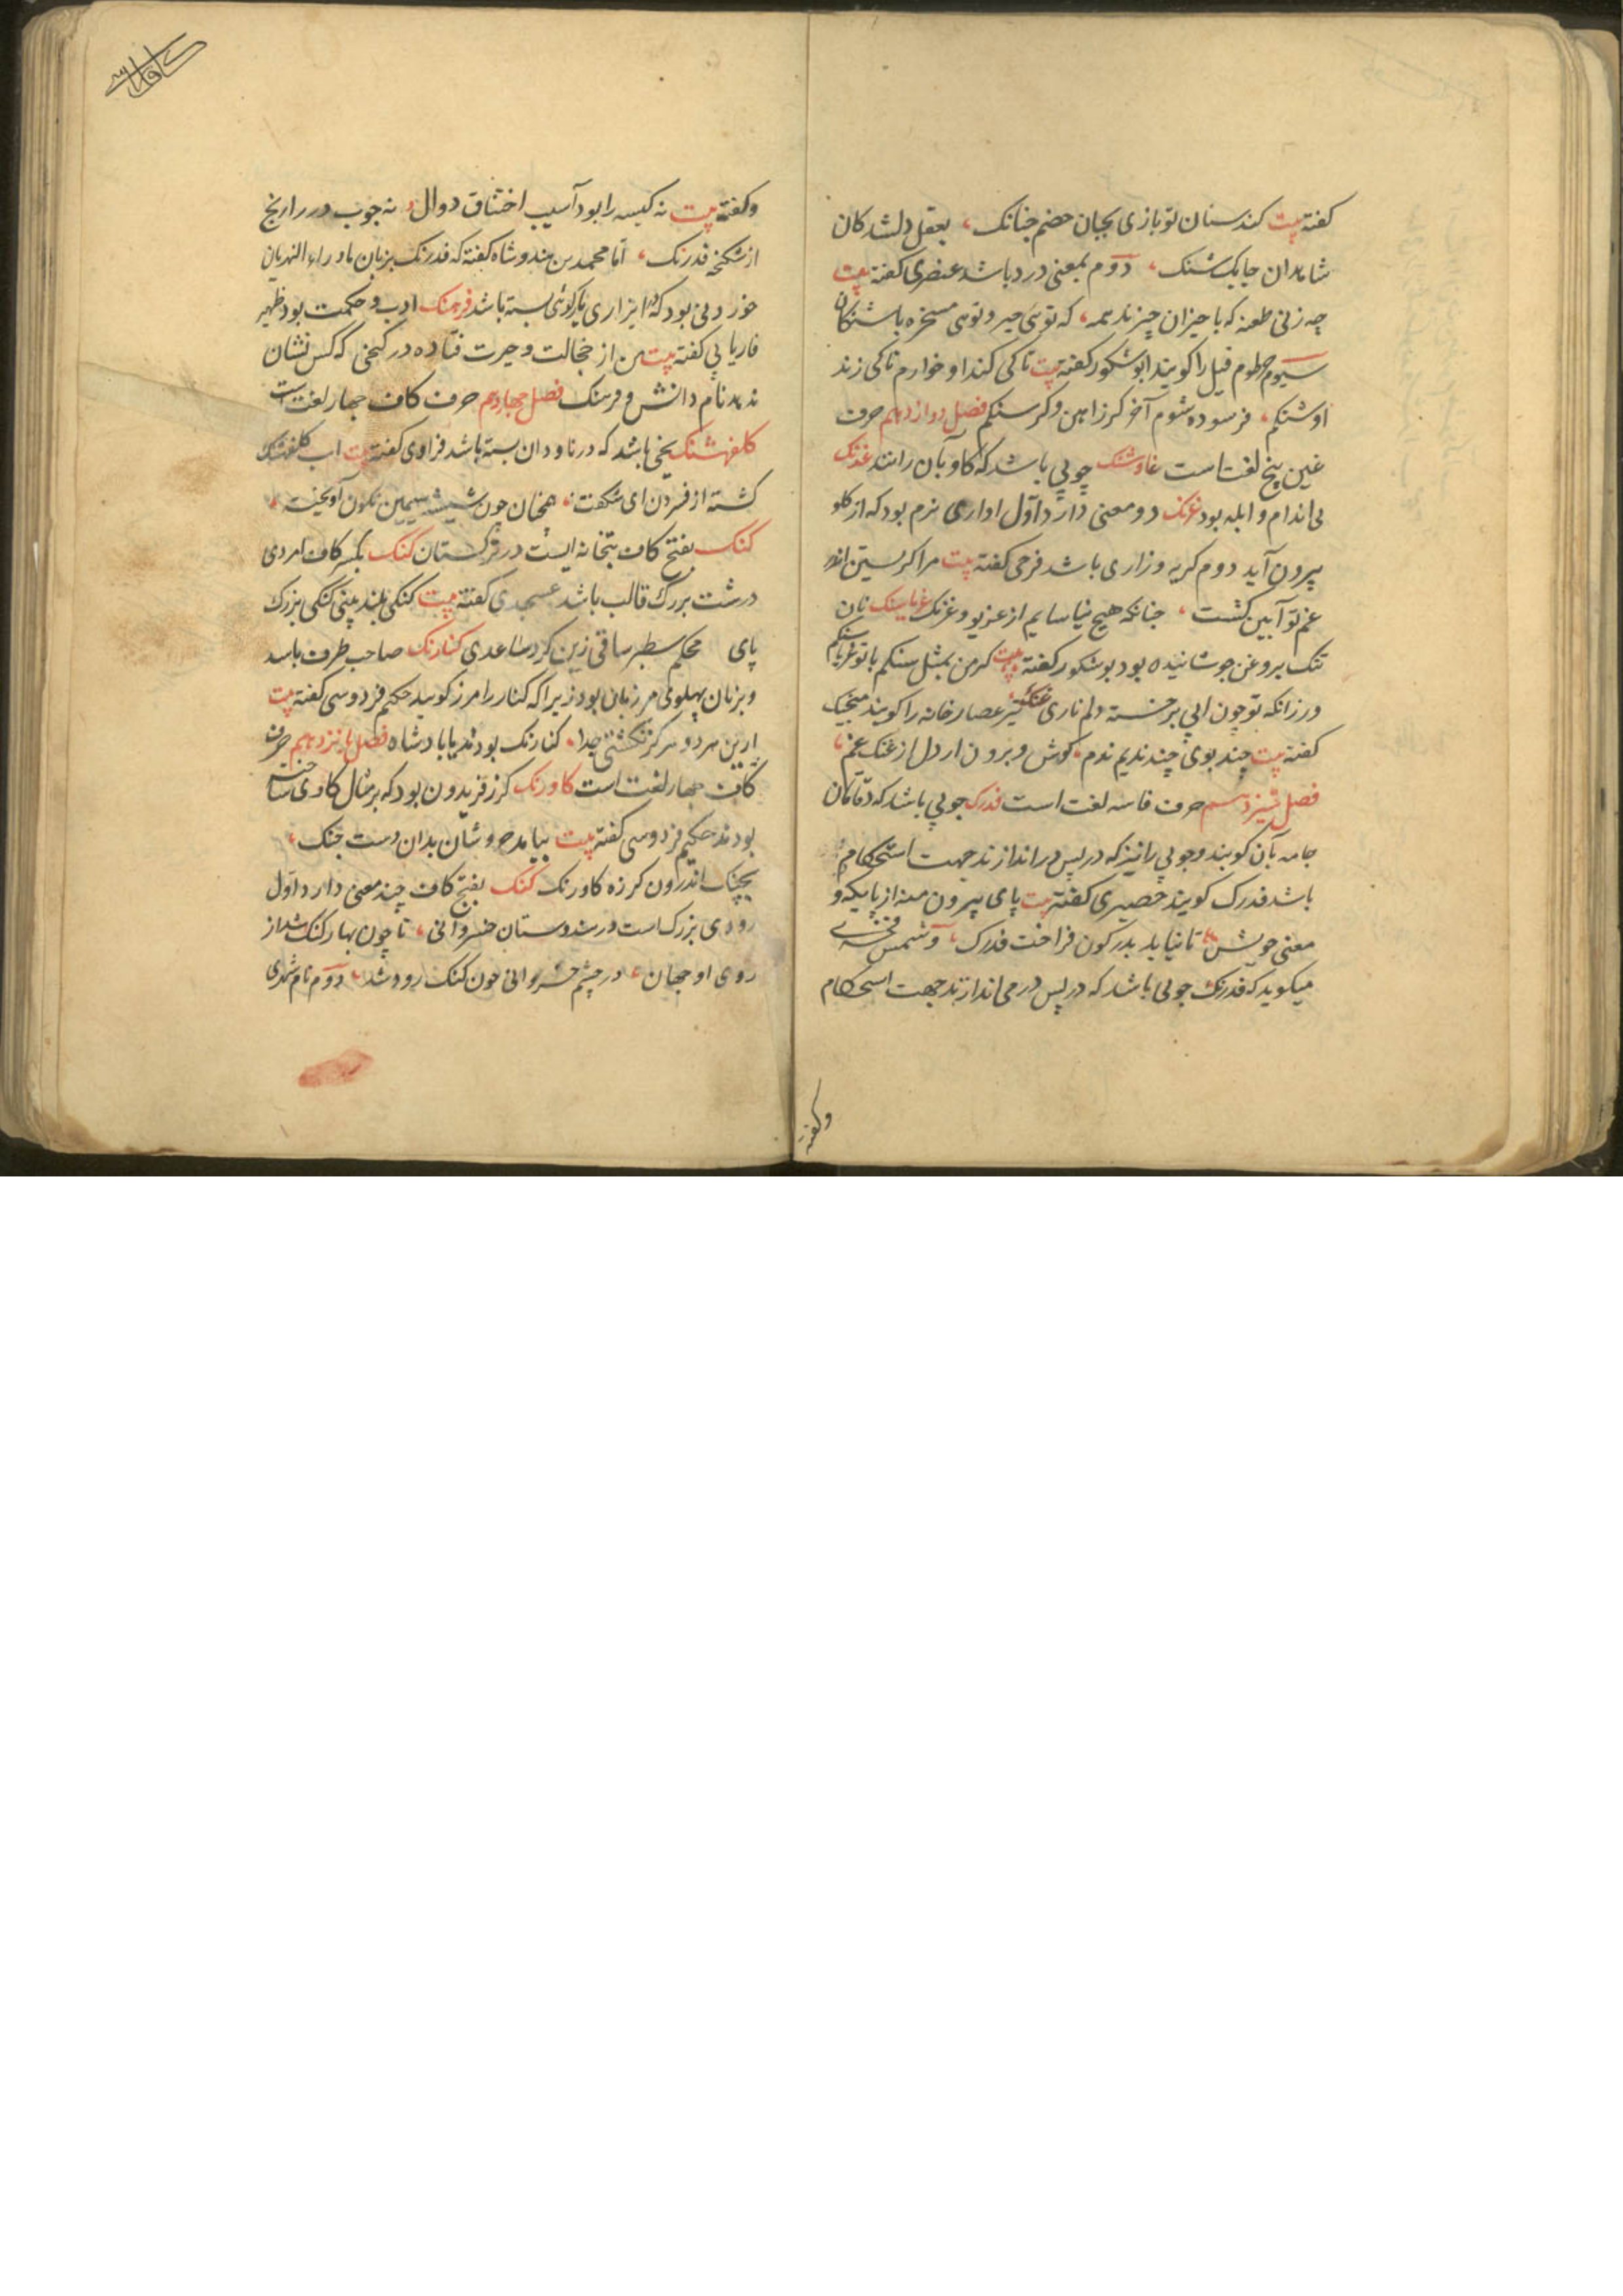 کفته بیت کند سنان تو بازی بجان خصم چنانک، بعقل دلشدکان
شاهدان چابک شنک، دوم بمعنی درد باشد عنصری کفته بیت
چه زنی طعنه که با حیزان حیزند همه، که توئی حیز و توئی مسخره باشنکان
سیوم خرطوم فیل را کویند ابوشکور کفته بیت تا کی کند او خوارم تا کی زند
او شنکم، فرسوده شوم آخر کرزاهن و کر سنکم فصل دوازدهم حرف
غین پنج لغت است غاوشنک چوبی باشد که کاو بآن رانند غدنک
بی اندام و ابله بود غرنک دو معنی دارد اول اواری نرم بود که از کلو
بیرون آید دوم کریه و زاری باشد فرخی کفته بیت مرا کریستن اندر
غم تو آیین کشت، چنانکه هیچ نیاسایم از غریو و غرنک غریاسنک نان
تنک بروغن جوشانیده بود بوشکور کفته بیت کر من بمثل سنکم با تو غریاسنکم
ورزانکه تو چون ابی بر خسته دلم ناری غنک تیر عصارخانه را کویند منجیک
کفته بیت چند بوی چند ندیم ندم، کوش و برون ار دل از غنک غم،
فصل سیزدهم حرف فا سه لغت است فدرک چوبی باشد که دقاقان
جامه بآن کوبند و چوبی را نیز که در پس در اندازند جهت استحکام
باشد فدرک کویند حصیری کفته بیت پای بیرون منه از پایکه و
معنی خویش، تا نیاید بدر کون فراخت فدرک، و شمس فخری
میکوید که فدرنک چوبی باشد که در پس در می اندازند جهت استحکام
وکفته
وکفته بیت نه کیسه را بود آسیب اختناق دوال، نه چوب در را رنج
از شکنجه فدرنک، اما محمد بن هندوشاه کفته که فدرنک بزبان ماوراء النهریان
خوردنی بود که در ایزاری یا رکوئی بسته باشد فرهنک ادب و حکمت بود ظهیر
فاریابی کفته بیت من از خجالت و حیرت فتاده در کنجی که کس نشان
ندهد نام دانش و فرهنک فصل چهاردهم حرف کاف چهار لغت است
کلفهشنک یخی باشد که در ناودان بسته باشد فرالاوی کفته بیت اب کلفهشنک
کشته از فسردن ای شکفت، همچنان چون شیشه سیمین نکون آویخته،
کنک بفتح کاف بتخانه ایست در ترکستان کنک بکسر کاف امردی
درشت بزرک قالب باشد عسجدی کفته بیت کنکی بلند بینی کنکی بزرک
پای محکم سطبر ساقی زین کردساعدی کنارنک صاحب طرف باشد
و بزبان پهلوی مرزبان بود زیرا که کنار را مرز کویند حکیم فردوسی کفته بیت
ازین هر دو هرکز نکشتی جدا، کنارنک بودند یا پادشاه فصل پانزدهم حرف
کاف چهار لغت است کاورنک کرز فریدون بود که بر مثال کاوی ساخته
بودند حکیم فردوسی کفته بیت بیامد خروشان بدان دشت جنک،
بچنک اندرون کرزه کاورنک کنک بفتح کاف چند معنی دارد اول
رودی بزرک است در هندوستان خسروانی، تا چون بهار کنک شد از
روی او جهان، در چشم خسروانی خون کنک رود شد، دوم نام شهری